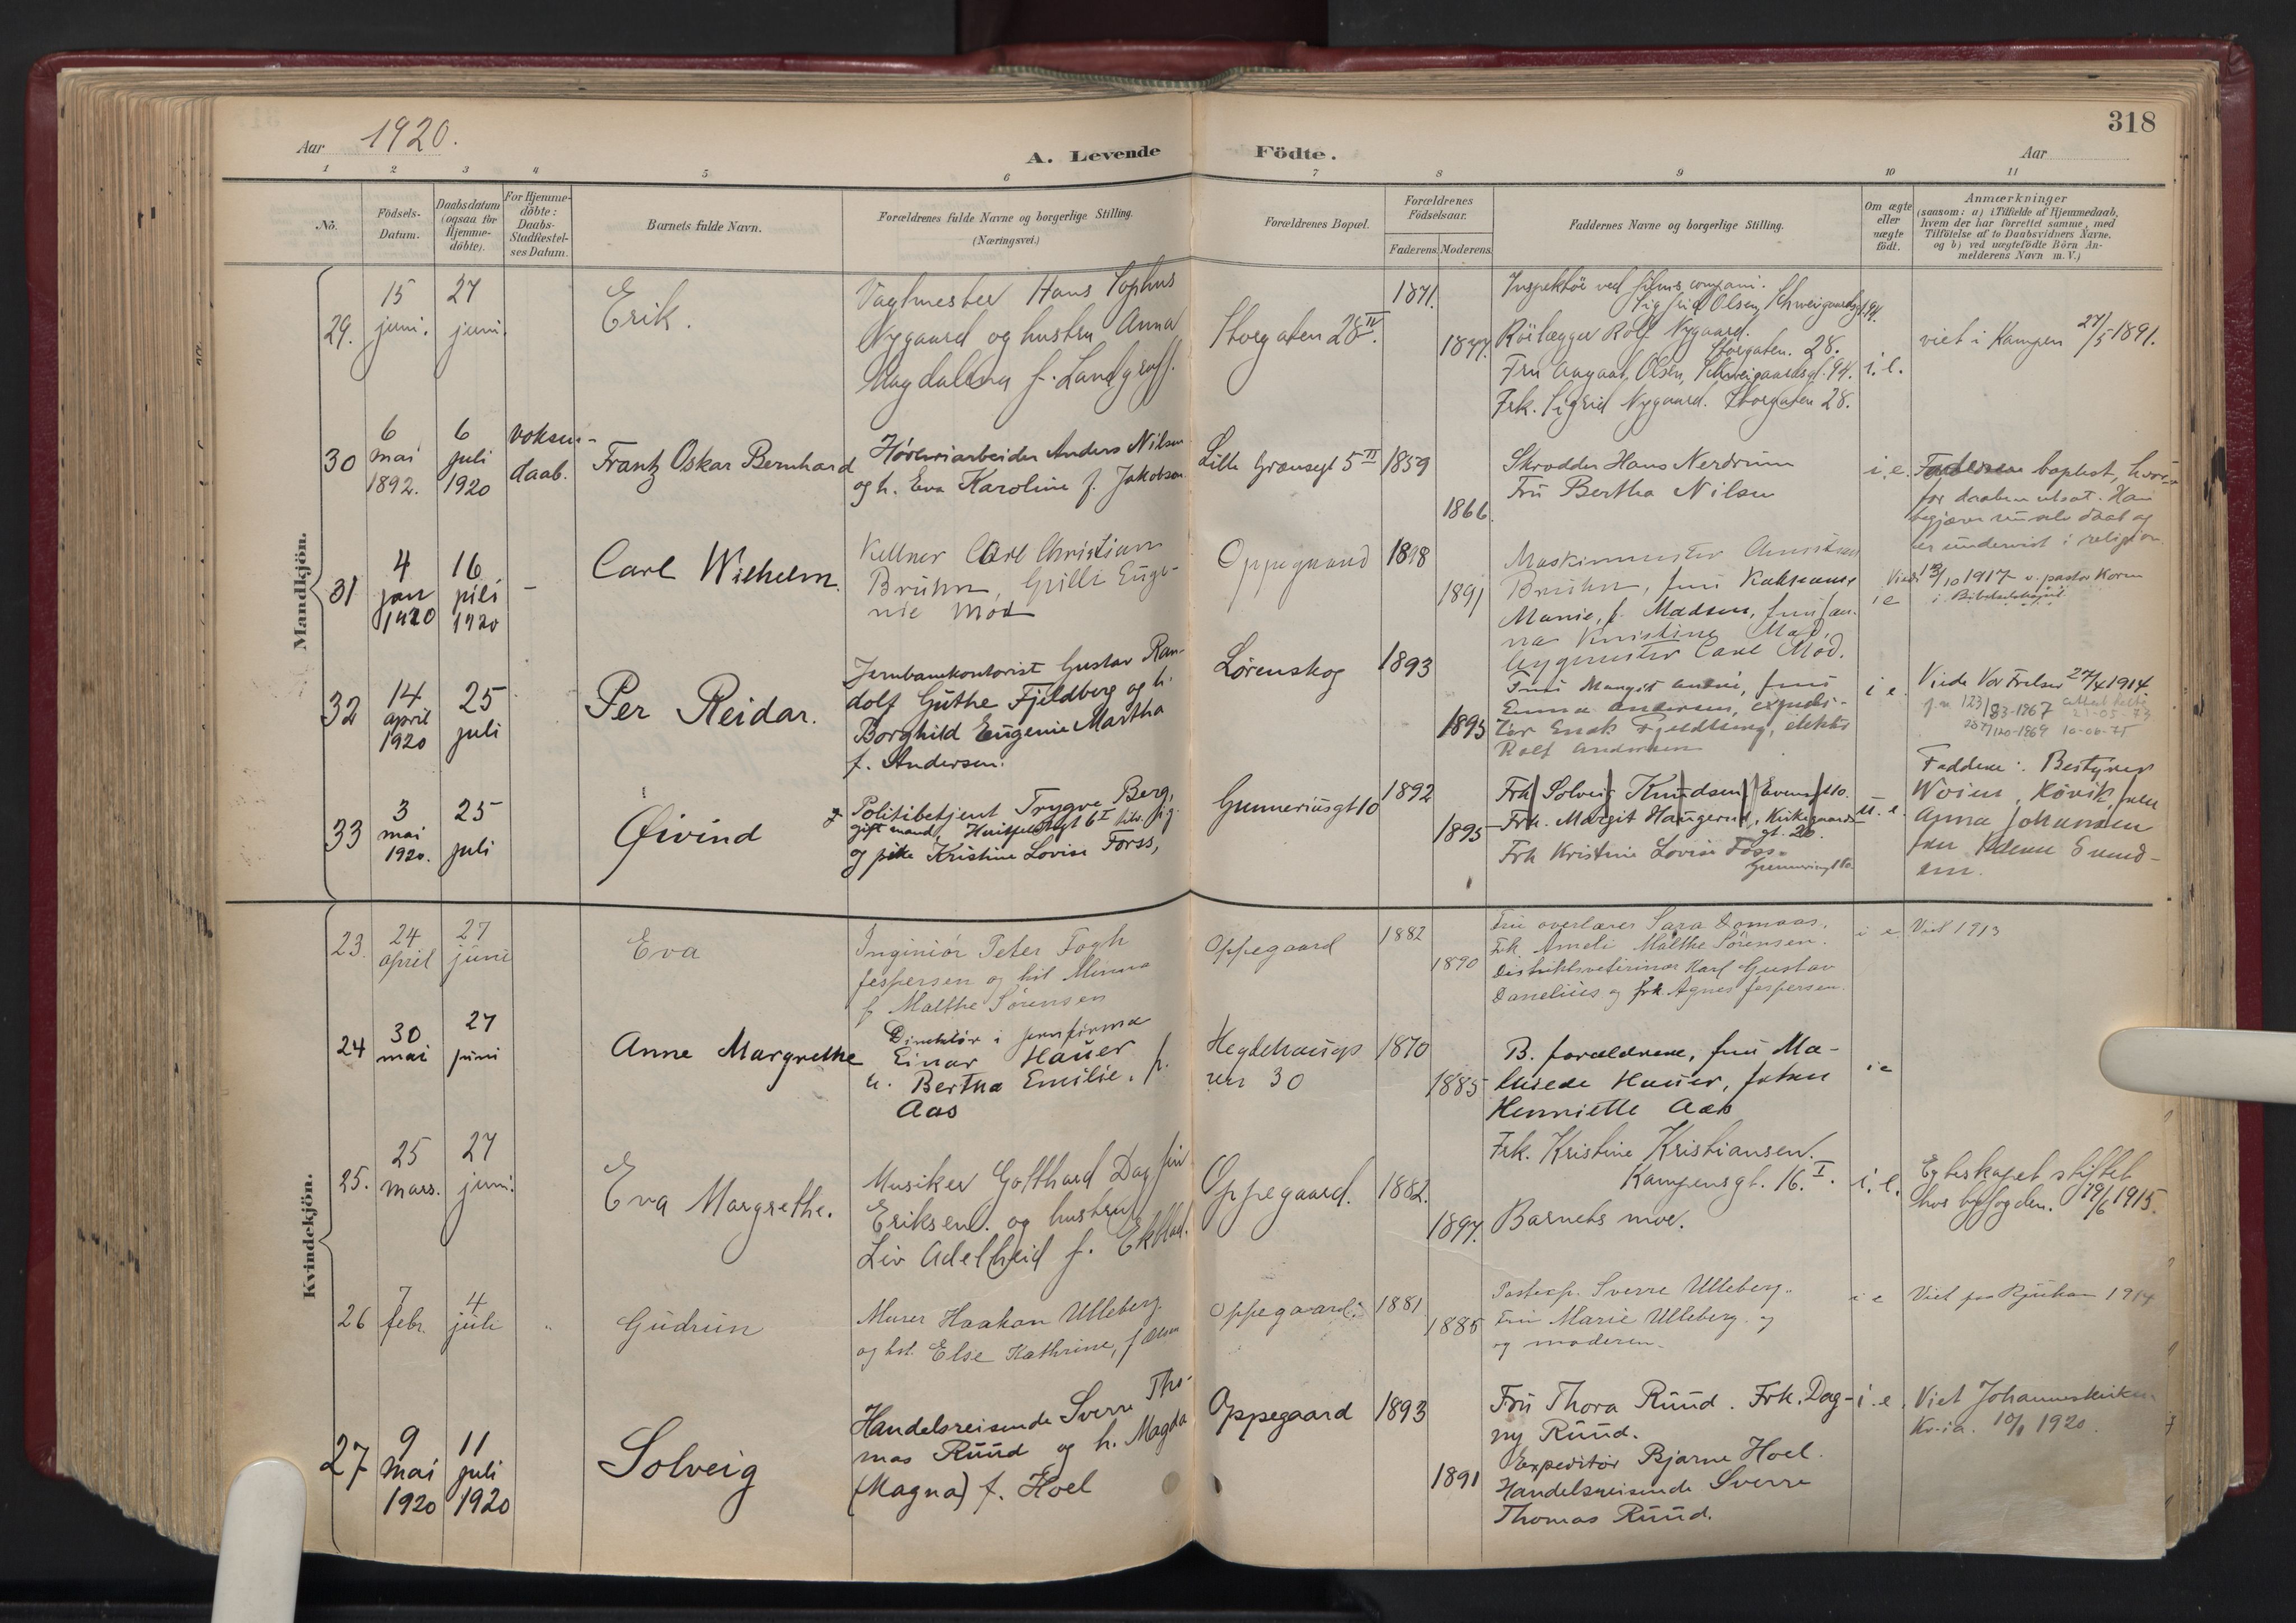 318
Aar 1920.
A. Levende Födte.
Aar
1 2 3 4 5 6 7 8 9 10 11
No.
Födsels-Datum.
Daabsdatum (ogsaa för Hjemme-döbte).
For Hjemme-döbte: Daabs-Stadfæstel-ses Datum.
Barnets fulde Navn.
Forældrenes fulde Navne og borgerlige Stilling.
(Næringsvei.)
Forældrenes Bopæl.
Forældrenes Födselsaar.
Faderens. Moderens.
Faddernes Navne og borgerlige Stilling.
Om ægte eller uægte födt.
Anmærkninger
(saasom: a) i Tilfælde af Hjemmedaab,
hvem der har forrettet samme, med
Tilföielse af to Daabsvidners Navne,
og b) ved uægtefödte Börn An-
melderens Navn m. V.)
Mandkjön.
29. 15 juni. 27 juni.
Erik.
Vagtmester Hans Sophus
Nygaard og hustru Anna
Magdalena f. Landgraff.
Storgaten 28 IV.
1871. 1877.
Sigfrid Olsen, Schweigaardsgt. 94.
Rörlægger Rolf Nygaard.
Storgaten. 28.
Fru Aagaat Olsen, Schweigaardsgt. 94.
Frk. Sigrid Nygaard. Storgaten 28.
i. e.
viet i Kampen 27/5 1891.
30 6 mai 1892. 6 juli 1920 voksen-
daab.
Frantz Oskar Bernhard
Anders Nilsen
og h. Eva Karoline f. Jakobsen
Lille Grænsegt 5 II
1859 1866.
Skrædder Hans Nerdrum
Fru Bertha Nilsen
i. e.
baptist, hvor-
for daaben utsat. Han
begjærer selv daab og
er undervist i religion.
31 4 jan 1920 16 juli 1920 -
Carl Wilhelm.
Kellner Carl Christian
Bruhn, Grilli Euge-
nie Mod
Oppegaard
1898 1891
Maskinmester Christian
Bruhn, fru Kathrine
Marie, f. Madsen, fru Jan-
na Kristine Mod,
bygmester Carl Mod.
i e
Viet 13/10 1917 v. pastor Koren
32 14 april 1920 25 juli
Per Reidar.
Jernbanekontorist Gustav Ran-
dolf Guthe Fjeldberg og h.
Borghild Eugenie Martha
f. Andersen.
Lørenskog
1893 1895
Fru Margit
Emma Andersen, expedi-
tør Fjeldberg,
Rolf Andersen
i e.
Viede Vor Frelser 27/4 1914
33 3 mai 1920. 25 juli
Øivind
Politibetjent Trygve Berg,
gift mand,
og pike Kristine Lovise Forss,
Gunneriusgt 10
1892 1895
Frk Solveig Knudsen
Frk. Margit Haugerud, Kirkegaards-
gt. 20.
Frk Kristine Lovise Foss-
Gunneriusgt 10.
u. e.
Faddere: Bestyrer
Woien, Høvik, fru
Anna Johansen
Kvindekjön.
23. 24 april 27 juni
Eva
Ingeniør Peter Fogh
Jespersen og hst Minna
f Malthe Sørensen
Oppegaard
1882 1890
Fru overlærer Sara Aamaas.
Frk. Ameli Malthe Sørensen.
Distriktsveterinær Karl Gustav
Danelius og frk. Agnes Jespersen.
i e.
Viet 1913
24 30 mai 27 juni
Anne Margrethe
Direktør i jernfirma
Einar Hauer
u. Bertha Emilie, f.
Aas
Hegdehaugs
vn 30
1870 1885
B. forældrene, fru Ma-
Hauer, frøken
Henriette Aas
i e
25. 25 mars. 27 juni.
Eva Margrethe.
Musiker Gotthard Dagfin
Eriksen. og hustru
Liv Adelheid f. Ekblad.
Oppegaard.
1882. 1897.
Frk. Kristine Kristiansen.
Kampensgt. 16. I.
Barnets mor.
i. e.
Egteskapet stiftet
hos byfogden. 19/6 1915.
26 7 febr. 4 juli "
Gudrun
Murer Haakon Ulleberg.
og hst. Else Kathrine, f Olsen
Oppegaard.
1881 1885
Postexp. Sverre Ulleberg..
Fru Marie Ulleberg. og
og moderen.
i e
Viet paa Rjukan 1914
27 9 mai 1920 11 juli 1920
Solveig
Handelsreisende Sverre Tho-
mas Ruud og h. Magda
(Magna) f. Hoel
Oppegaard
1893 1891
Fru Thora Ruud. Frk. Dag-
ny Ruud.
Expeditør Bjarne Hoel.
Handelsreisende Sverre
Thomas Ruud.
i. e.
Viet Johanneskirken
Kr-ia. 1920.